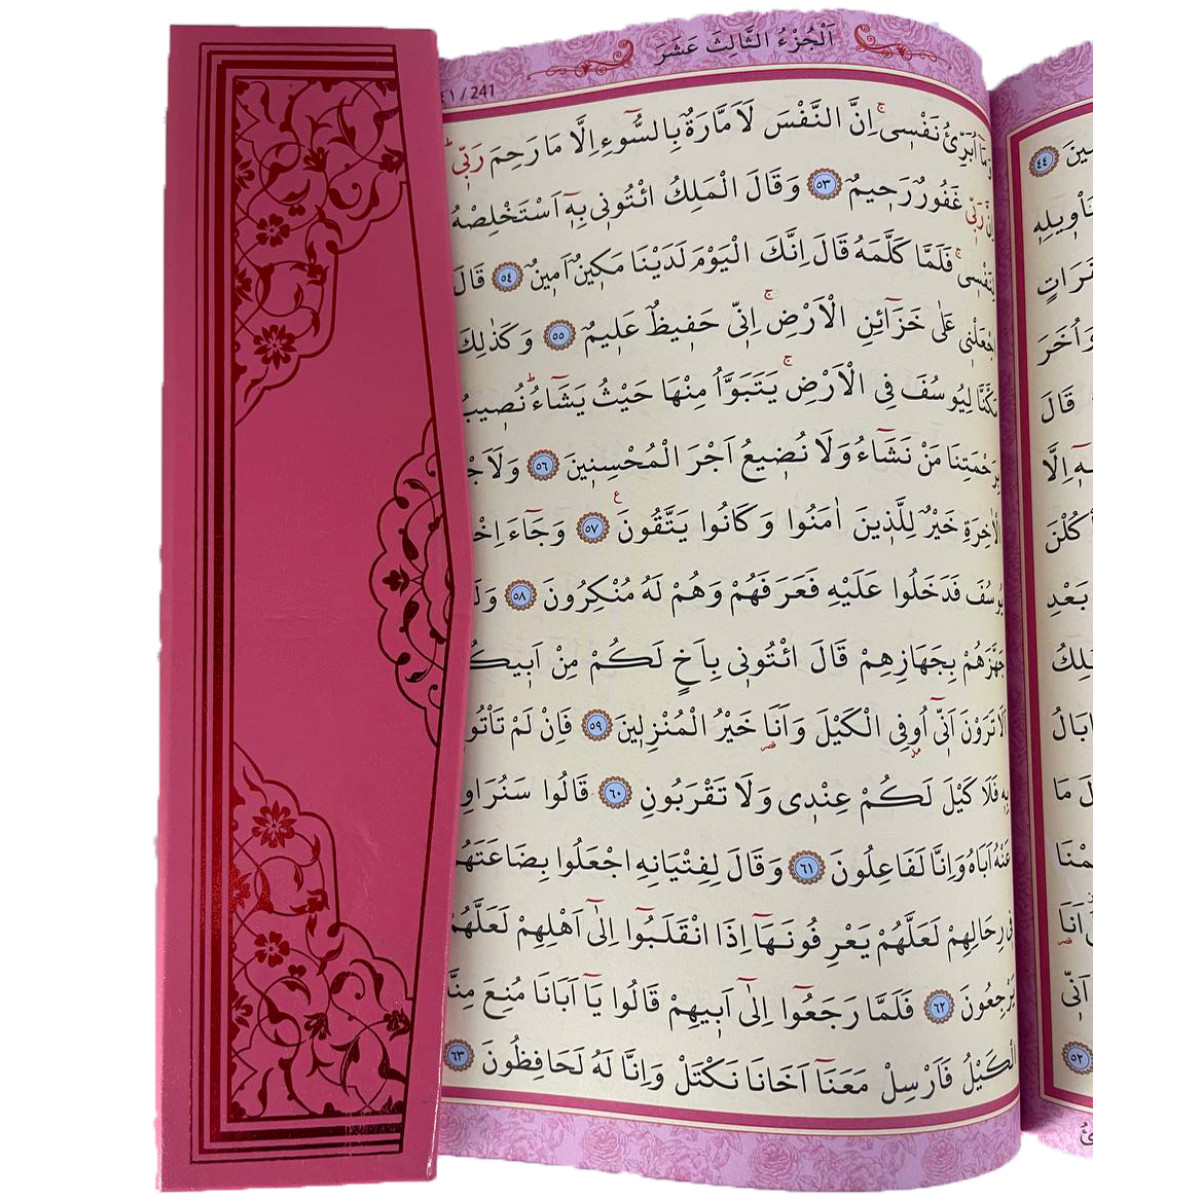 اَلْجُزْءُ الثَّالِثَ عَشَرَ
241 / ٢٤١
وَمَٓا اُبَرِّئُ نَفْس۪يۚ اِنَّ النَّفْسَ لَاَمَّارَةٌ بِالسُّٓوءِ اِلَّا مَا رَحِمَ رَبّ۪يۜ
اِنَّ رَبّ۪ي غَفُورٌ رَح۪يمٌ ﴿٥٣﴾ وَقَالَ الْمَلِكُ ائْتُون۪ي بِه۪ٓ اَسْتَخْلِصْهُ
لِنَفْس۪يۚ فَلَمَّا كَلَّمَهُ قَالَ اِنَّكَ الْيَوْمَ لَدَيْنَا مَك۪ينٌ اَم۪ينٌ ﴿٥٤﴾ قَالَ
اجْعَلْن۪ي عَلٰى خَزَٓائِنِ الْاَرْضِۚ اِنّ۪ي حَف۪يظٌ عَل۪يمٌ ﴿٥٥﴾ وَكَذٰلِكَ
مَكَّنَّا لِيُوسُفَ فِي الْاَرْضِۚ يَتَبَوَّاُ مِنْهَا حَيْثُ يَشَٓاءُۜ نُص۪يبُ
بِرَحْمَتِنَا مَنْ نَشَٓاءُ وَلَا نُض۪يعُ اَجْرَ الْمُحْسِن۪ينَ ﴿٥٦﴾
الْاٰخِرَةِ خَيْرٌ لِلَّذ۪ينَ اٰمَنُوا وَكَانُوا يَتَّقُونَ ﴿٥٧﴾ وَجَٓاءَ
يُوسُفَ فَدَخَلُوا عَلَيْهِ فَعَرَفَهُمْ وَهُمْ لَهُ مُنْكِرُونَ ﴿٥٨﴾
جَهَّزَهُمْ بِجَهَازِهِمْ قَالَ ائْتُون۪ي بِاَخٍ لَكُمْ مِنْ
اَلَا تَرَوْنَ اَنّ۪ٓي اُو۫فِي الْكَيْلَ وَاَنَا خَيْرُ الْمُنْزِل۪ينَ ﴿٥٩﴾ فَاِنْ لَمْ
بِه۪ فَلَا كَيْلَ لَكُمْ عِنْد۪ي وَلَا تَقْرَبُونِ ﴿٦٠﴾ قَالُوا
عَنْهُ اَبَاهُ وَاِنَّا لَفَاعِلُونَ ﴿٦١﴾ وَقَالَ لِفِتْيَانِهِ اجْعَلُوا بِضَاعَتَهُمْ
ف۪ي رِحَالِهِمْ لَعَلَّهُمْ يَعْرِفُونَهَٓا اِذَا انْقَلَبُٓوا اِلٰٓى اَهْلِهِمْ لَعَلَّهُمْ
يَرْجِعُونَ ﴿٦٢﴾ فَلَمَّا رَجَعُٓوا اِلٰٓى اَب۪يهِمْ قَالُوا يَٓا اَبَانَا مُنِعَ مِنَّا
الْكَيْلُ فَاَرْسِلْ مَعَنَٓا اَخَانَا نَكْتَلْ وَاِنَّا لَهُ لَحَافِظُونَ ﴿٦٣﴾
﴿٤٤﴾
وَاُخَرَ
قَالَ
اِلَّا
كُلْنَ
بَعْدِ
مَا
اَنَا
﴿٥٢﴾